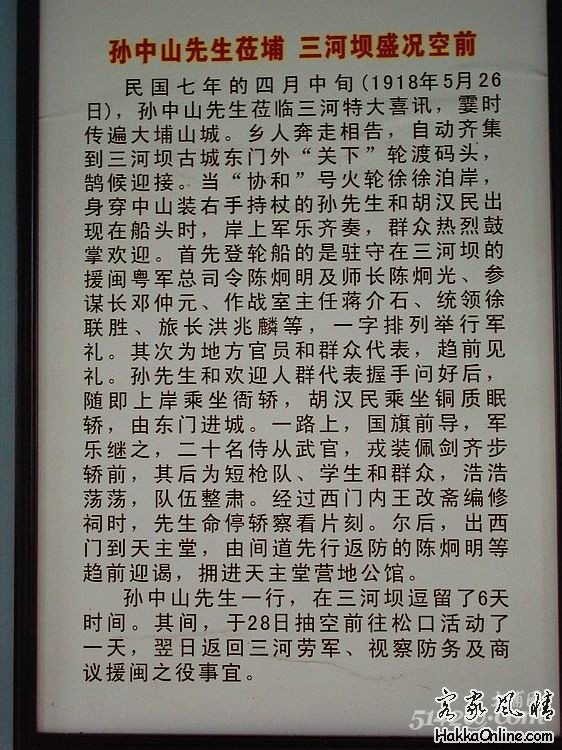 孙中山先生莅埔 三河坝盛况空前
民国七年的四月中旬(1918年5月26
日)，孙中山先生莅临三河特大喜讯，霎时
传遍大埔山城。乡人奔走相告，自动齐集
到三河坝古城东门外“关下”轮渡码头，
鹄候迎接。当“协和”号火轮徐徐泊岸，
身穿中山装右手持杖的孙先生和胡汉民出
现在船头时，岸上军乐齐奏，群众热烈鼓
掌欢迎。首先登轮船的是驻守在三河坝的
援闽粤军总司令陈炯明及师长陈炯光、参
谋长邓仲元、作战室主任蒋介石、统领徐
联胜、旅长洪兆麟等，一字排列举行军
礼。其次为地方官员和群众代表，趋前见
礼。孙先生和欢迎人群代表握手问好后，
随即上岸乘坐衙轿，胡汉民乘坐铜质眠
轿，由东门进城。一路上，国旗前导，军
乐继之，二十名侍从武官，戎装佩剑齐步
轿前，其后为短枪队、学生和群众，浩浩
荡荡，队伍整肃。经过西门内王改斋编修
祠时，先生命停轿察看片刻。尔后，出西
门到天主堂，由间道先行返防的陈炯明等
趋前迎谒，拥进天主堂营地公馆。
孙中山先生一行，在三河坝逗留了6天
时间。其间，于28日抽空前往松口活动了
一天，翌日返回三河劳军、视察防务及商
议援闽之役事宜。
客家风情
HakkaOnline.com